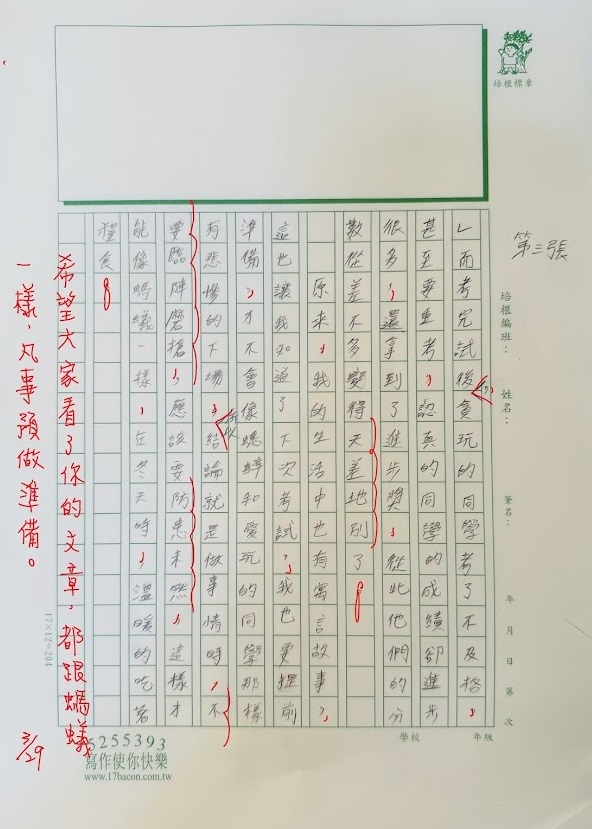 培根標章
第三張
培根編班：
姓名：
筆名：
年 月 日 第 次
學校
年級
」而考完試後貪玩的同學考了不及格，
的
甚至要重考，認真的同學的成績卻進步
很多，還拿到了進步獎，從此他們的分
數從差不多變得天差地別了。
原來，我的生活中也有寓言故事，
這也讓我知道了下次考試，我也要提前
準備，才不會像蟋蟀和愛玩的同學那樣
有悲慘的下場，結論就是做事情時，不
所以
要臨陣磨槍，應該要防患未然，這樣才
能像螞蟻一樣，在冬天時，溫暖的吃著
糧食。
希望大家看了你的文章，都跟螞蟻
一樣，凡事預做準備。
3/29
17×12=204
5255393
寫作使你快樂
www.17bacon.com.tw